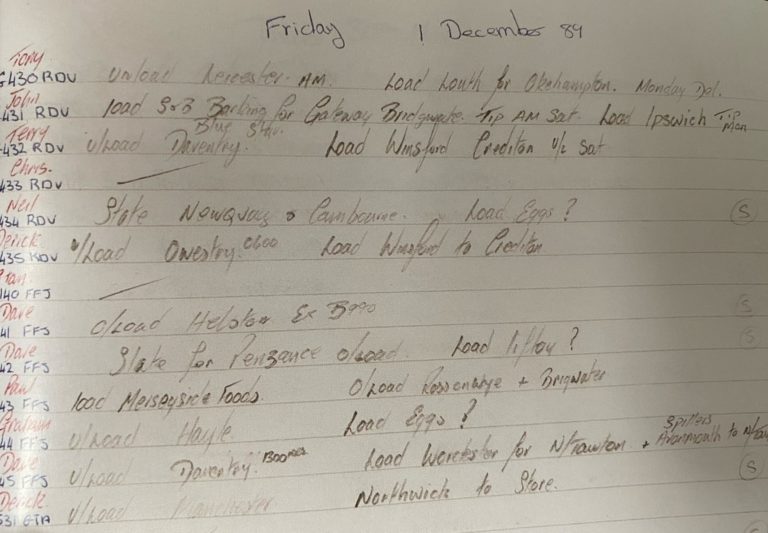 Friday 1 December 89
Tony
430 RDV unload Leicester. AM. Load Louth for Okehampton. Monday Del.
John
431 RDV load S&B Barking for Gateway Bridgwater. Tip AM Sat. Load Ipswich Tip Mon
Terry Blue Star.
432 RDV u/Load Daventry. Load Winsford Crediton u/L Sat
Chris.
433 RDV
Neil
434 RDV State Newquay & Cambourne. Load Eggs? S
Derick
435 RDV u/Load Oswestry. 0600 Load Winsford to Crediton
140 FFJ
Dave
41 FFS o/Load Helston Ex S
Dave
42 FFS for Penzance o/Load. Load ? S
Paul
43 FFS load Merseyside Foods. O/Load + Brigwater
Graham
44 FFS u/Load Hayle Load Eggs?
Dave Spillers
45 FFS u/Load Daventry. 1300 Load Worcester for N/Tawton + Avonmouth to S
Derick
531 GTA u/Load Manchester Northwick to Store.